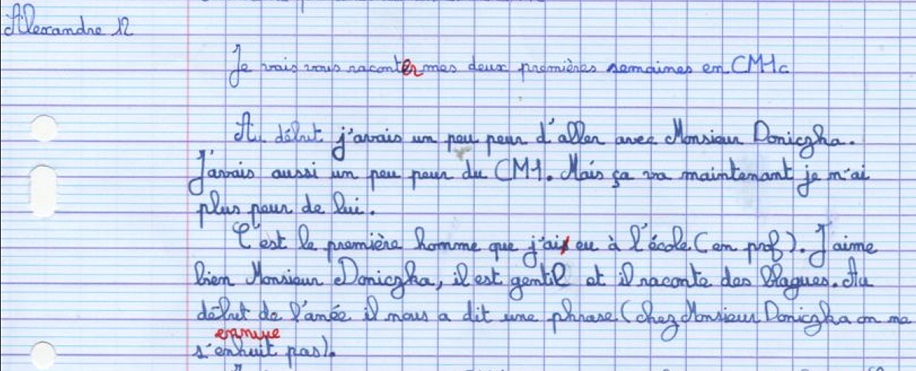 Alexandre R
Je vais vous raconter mes deux premières semaines en CM1c
Au début j'avais un peu peur d'aller avec Monsieur Doniczka.
J'avais aussi un peu peur du CM1. Mais ça va maintenant je n'ai
plus peur de lui.
C'est le première homme que j'ai eu à l'école (en prof). J'aime
bien Monsieur Doniczka, il est gentil et il raconte des blagues. Au
début de l'anée il nous a dit une phrase (chez Monsieur Doniczka on ne
ennuie
s'enhuit pas).